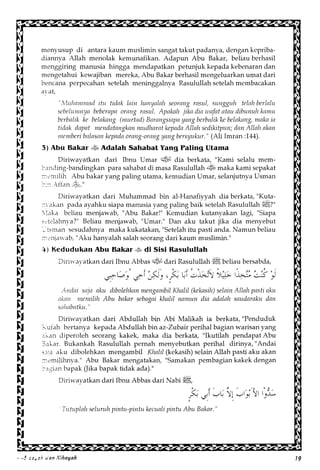 menyusup di antara kaum muslimin sangat takut padanya, dengan kepriba-
diannya Allah menolak kemunafikan. Adapun Abu Bakar, beliau berhasil
menggiring manusia hingga mendapatkan petunjuk kepada kebenaran dan
mengetahui kewajiban mereka, Abu Bakar berhasil mengeluarkan umat dari
bencana perpecahan setelah meninggalnya Rasulullah setelah membacakan
ayat,
"Muhammad itu tidak lain hanyalah seorang rasul, sungguh telah berlalu
sebelumnya beberapa orang rasul. Apakah jika dia wafat atau dibunuh kamu
berbalik ke belakang (murtad) Barangsiapa yang berbalik ke belakang, maka ia
tidak dapat mendatangkan mudharat kepada Allah sedikitpun; dan Allah akan
memberi balasan kepada orang-orang yang bersyukur." (Ali Imran :144).
3) Abu Bakar Adalah Sahabat Yang Paling Utama
Diriwayatkan dari Ibnu Umar dia berkata, "Kami selalu mem-
banding-bandingkan para sahabat di masa Rasulullah ﷺ maka kami sepakat
memilih Abu bakar yang paling utama, kemudian Umar, selanjutnya Usman
bin Affan."
Diriwayatkan dari Muhammad bin al-Hanafiyyah dia berkata, "Kuta-
nyakan pada ayahku siapa manusia yang paling baik setelah Rasulullah ﷺ?"
Maka beliau menjawab, "Abu Bakar!" Kemudian kutanyakan lagi, "Siapa
setelahnya?" Beliau menjawab, "Umar." Dan aku takut jika dia menyebut
Usman sesudahnya maka kukatakan, "Setelah itu pasti anda. Namun beliau
menjawab, "Aku hanyalah salah seorang dari kaum muslimin."
4) Kedudukan Abu Bakar di Sisi Rasulullah
Diriwayatkan dari Ibnu Abbas dari Rasulullah ﷺ beliau bersabda,
Andai saja aku dibolehkan mengambil Khalil (kekasih) selain Allah pasti aku
akan memilih Abu bakar sebagai khalil namun dia adalah saudaraku dan
sahabatku."
Diriwayatkan dari Abdullah bin Abi Malikah ia berkata, "Penduduk
Kufah bertanya kepada Abdullah bin az-Zubair perihal bagian warisan yang
akan diperoleh seorang kakek, maka dia berkata, "Ikutilah pendapat Abu
Bakar. Bukankah Rasulullah pernah menyebutkan perihal dirinya, "Andai
saja aku dibolehkan mengambil Khalil (kekasih) selain Allah pasti aku akan
memilihnya." Abu Bakar mengatakan, "Samakan pembagian kakek dengan
bagian bapak (Jika bapak tidak ada)."
Diriwayatkan dari Ibnu Abbas dari Nabi ﷺ,
سُدُّوا الأَبْوَابَ إِلاَّ بَابَ أَبِي بَكْرٍ
"Tutuplah seluruh pintu-pintu kecuali pintu Abu Bakar."
19